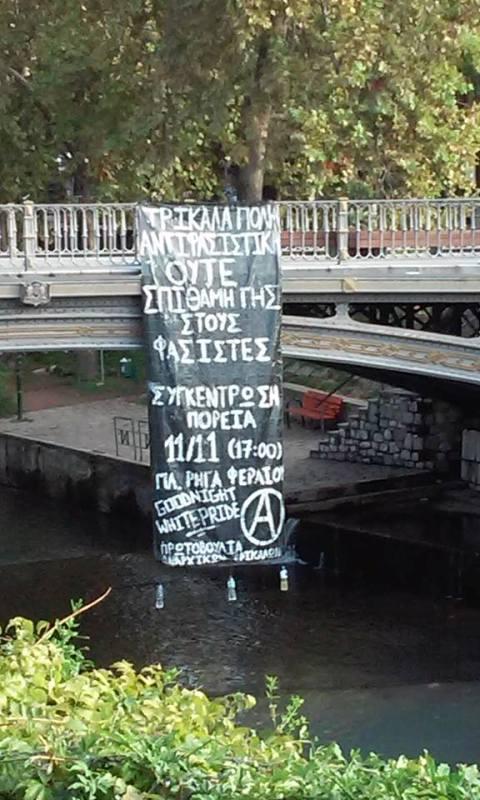 ΤΡΙΚΑΛΑ ΠΟΛΗ
ΑΝΤΙΦΑΣΙΣΤΙΚΗ
ΟΥΤΕ
ΣΠΙΘΑΜΗ ΓΗΣ
ΣΤΟΥΣ
ΦΑΣΙΣΤΕΣ
ΣΥΓΚΕΝΤΡΩΣΗ
ΠΟΡΕΙΑ
11/11 (17:00)
ΠΛ. ΡΗΓΑ ΦΕΡΑΙΟΥ
GOODNIGHT
WHITE PRIDE
Α
ΠΡΩΤΟΒΟΥΛΙΑ
ΑΝΑΡΧΙΚΩΝ ΤΡΙΚΑΛΩΝ